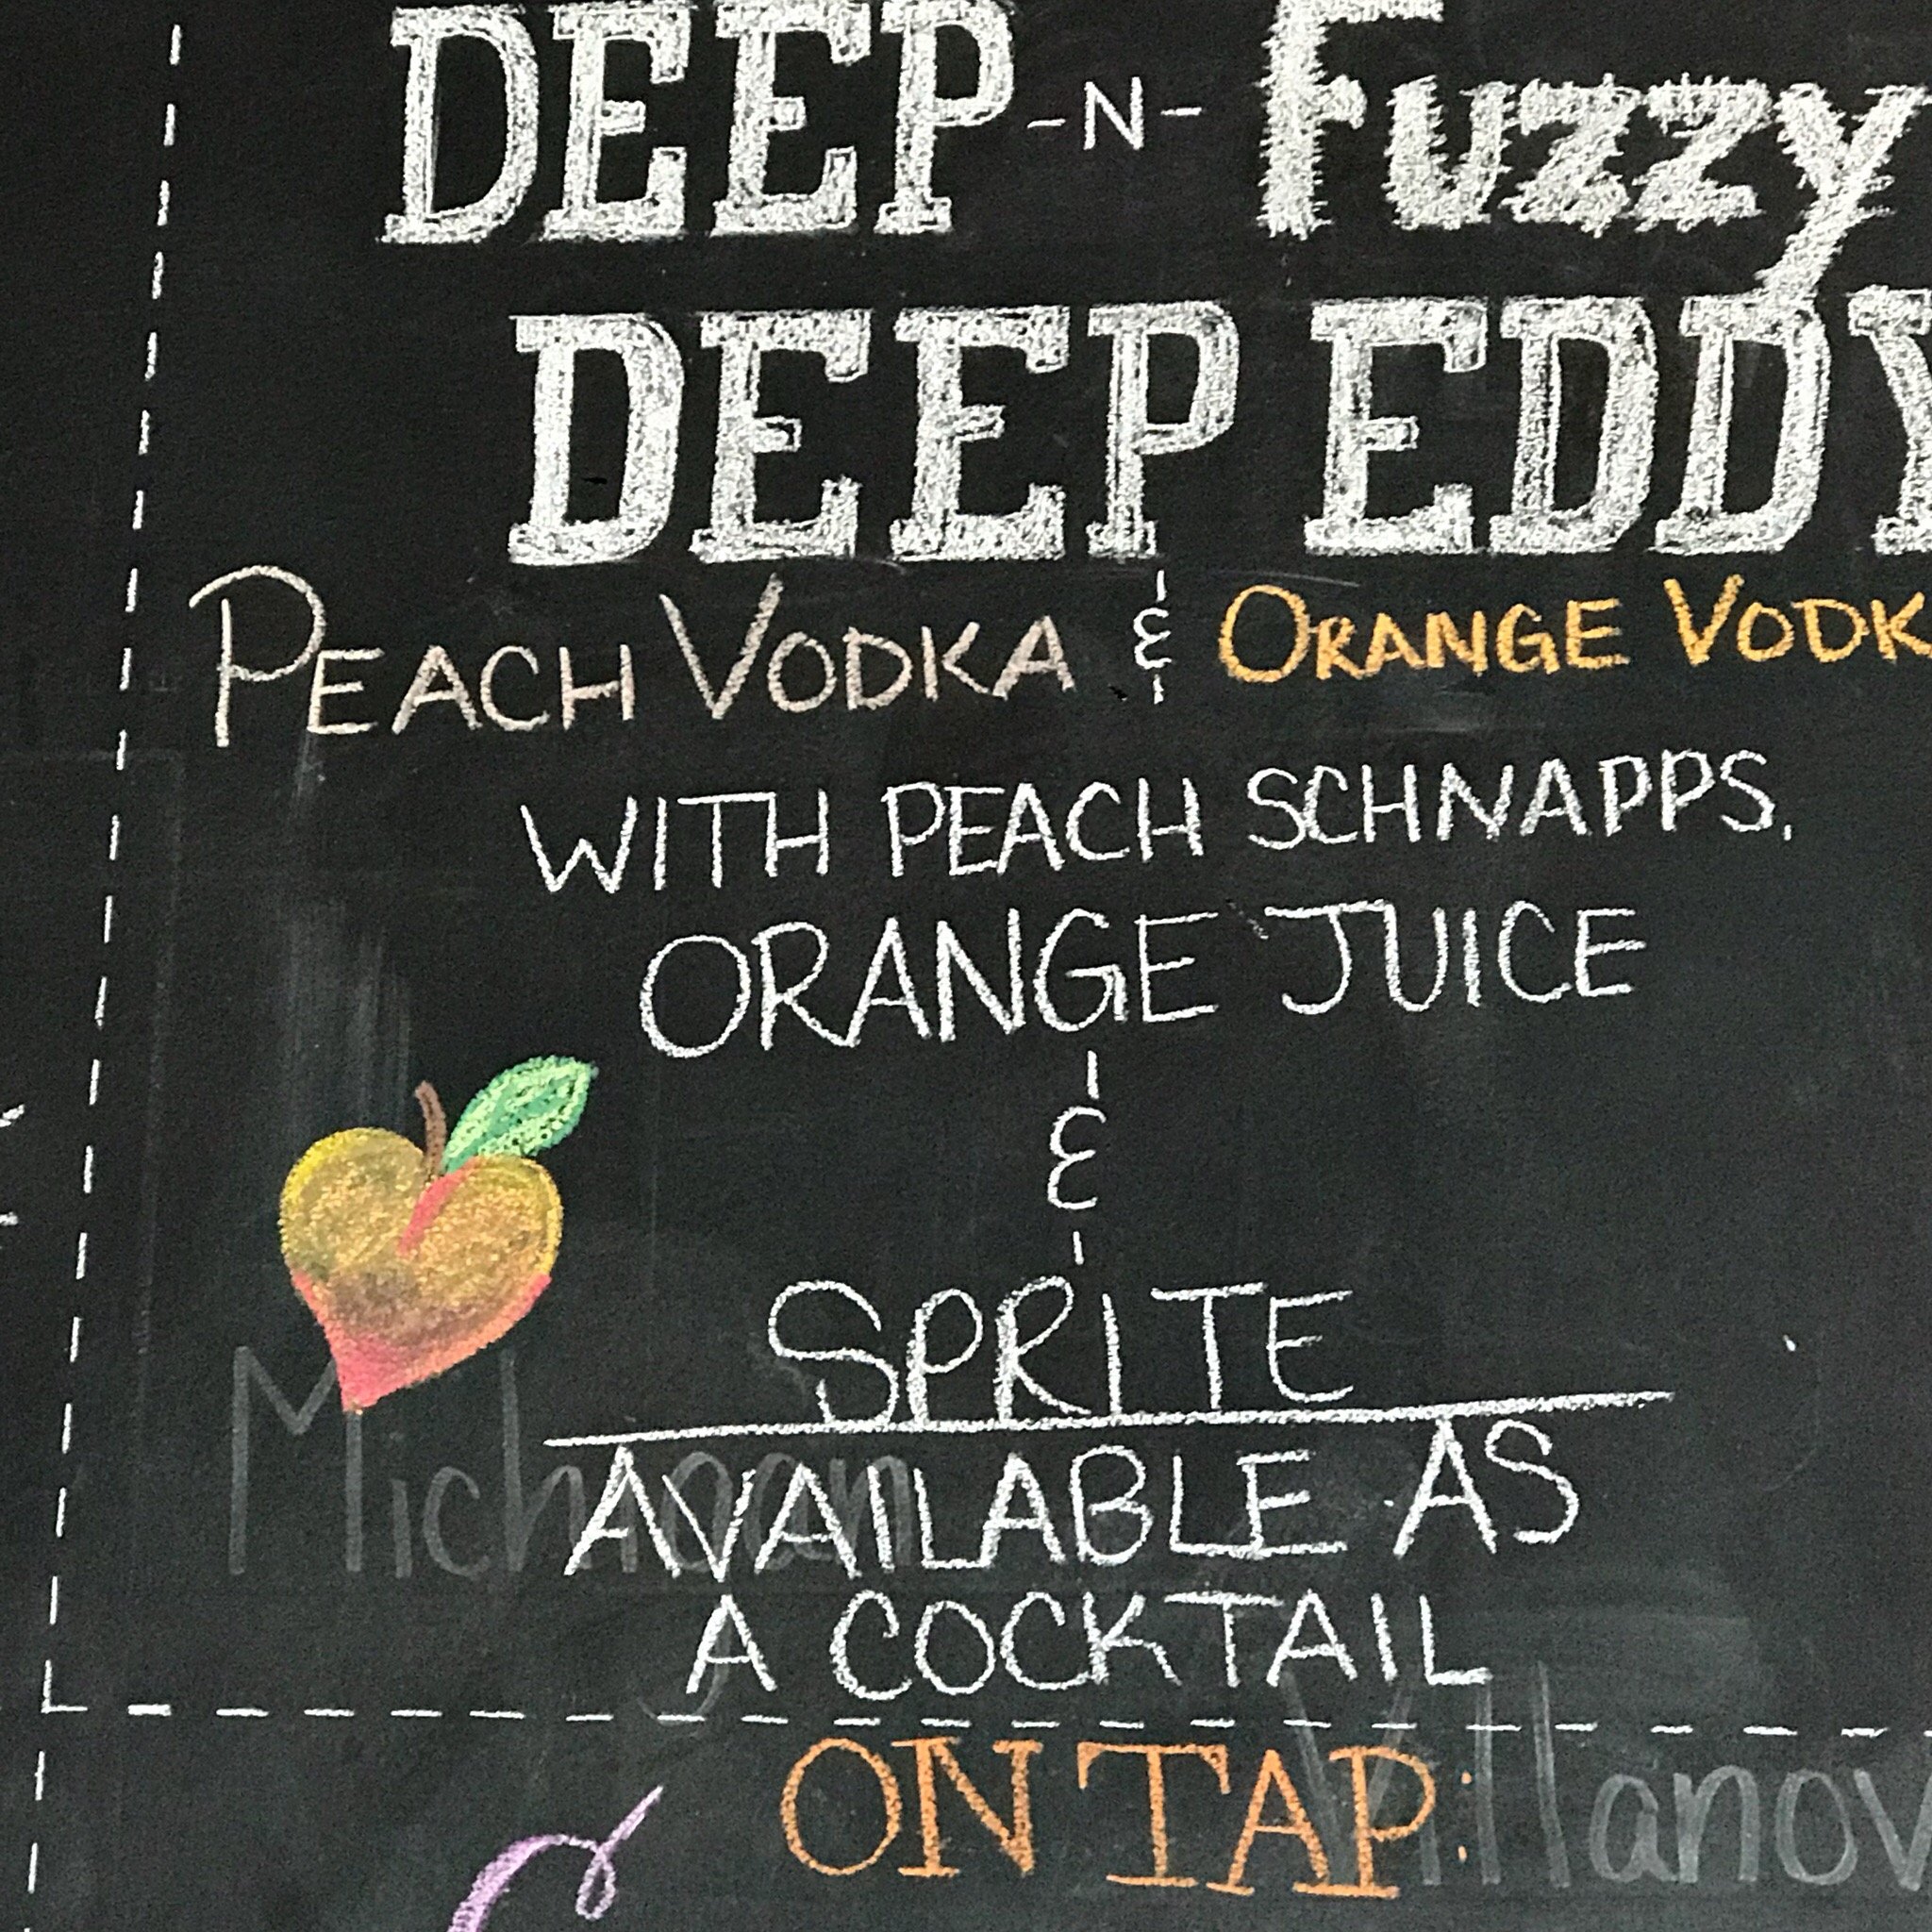 DEEP -N- Fuzzy
DEEP EDDY
PEACH VODKA & ORANGE VODK
WITH PEACH SCHNAPPS,
ORANGE JUICE
&
SPRITE
AVAILABLE AS
Michigan
A COCKTAIL
ON TAP:
Villanov